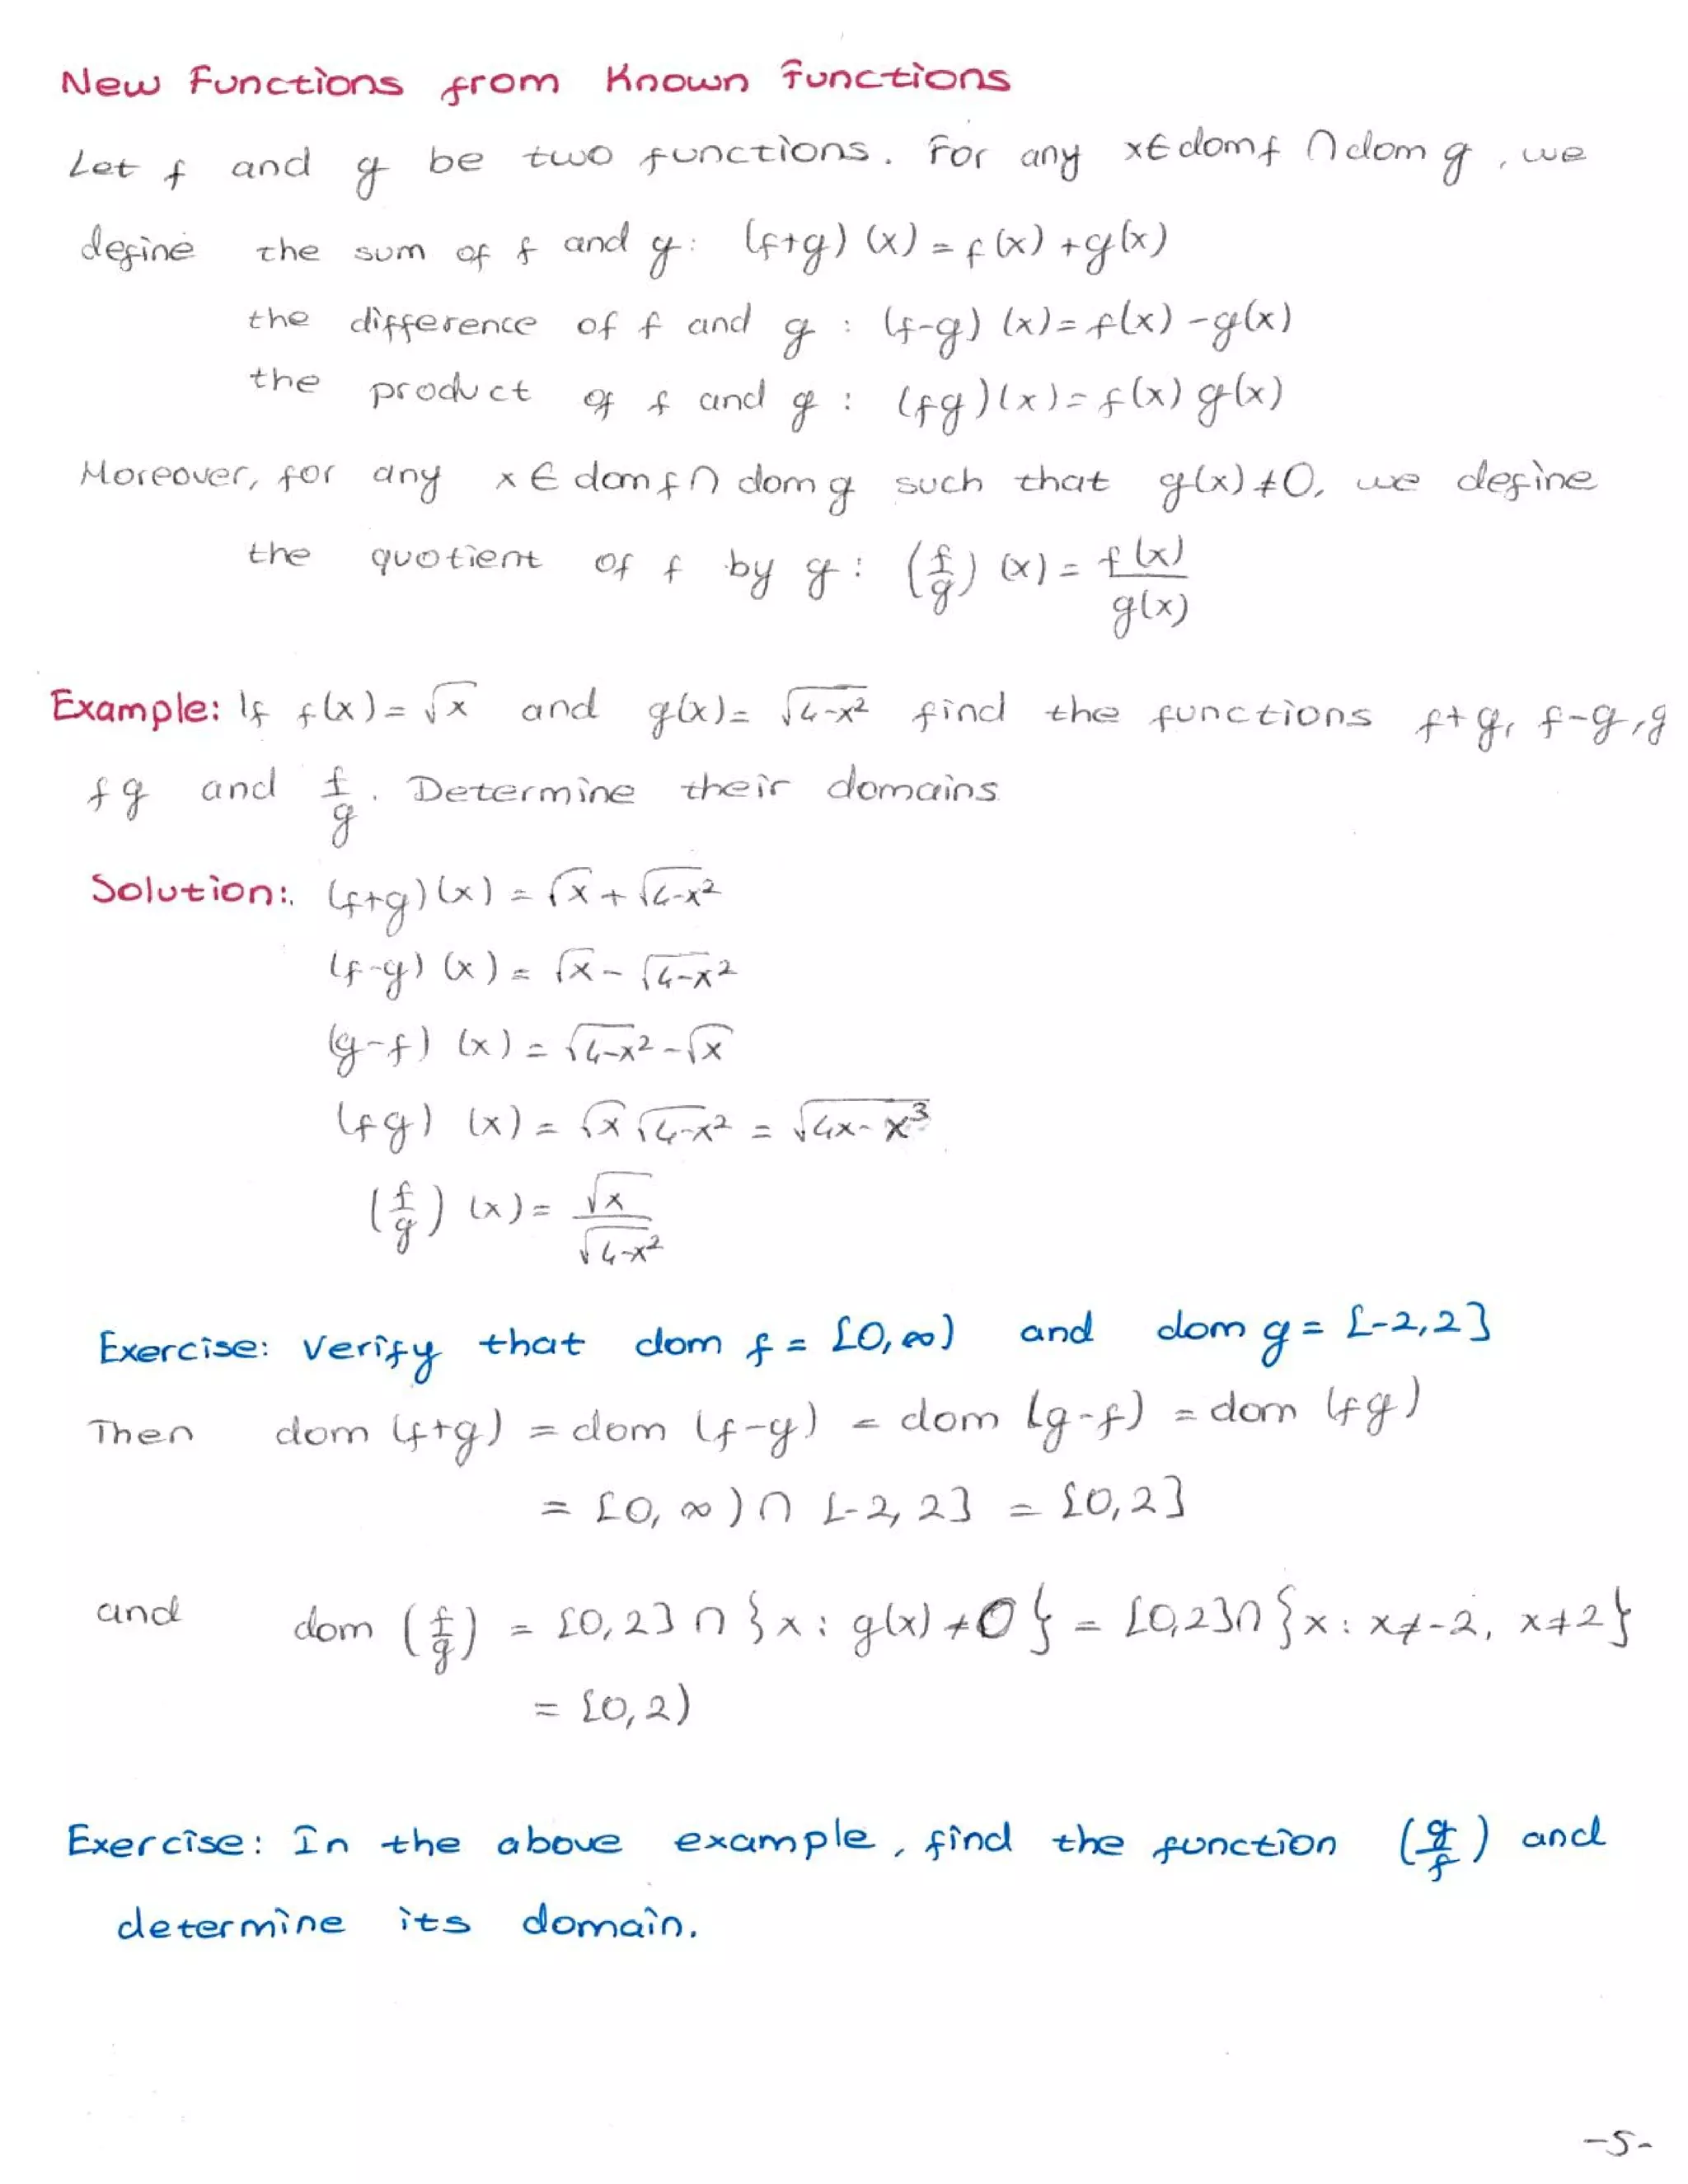 New Functions from Known Functions
Let f and g be two functions. For any x∈domf ∩ dom g, we
define the sum of f and g: (f+g)(x) = f(x)+g(x)
the difference of f and g : (f-g)(x) = f(x)-g(x)
the product of f and g : (fg)(x) = f(x) g(x)
Moreover, for any x ∈ domf ∩ dom g such that g(x)≠0, we define
the quotient of f by g : (f/g)(x) = f(x)/g(x)
Example: If f(x)= √x and g(x)= √(4-x²) find the functions f+g, f-g, g
fg and f/g. Determine their domains
Solution: (f+g)(x) = √x + √(4-x²)
(f-g)(x) = √x - √(4-x²)
(g-f)(x) = √(4-x²) - √x
(fg)(x) = √x √(4-x²) = √(4x-x³)
(f/g)(x) = √x/√(4-x²)
Exercise: Verify that dom f = [0,∞) and dom g = [-2,2]
Then dom (f+g) = dom (f-g) = dom (g-f) = dom (fg)
= [0,∞) ∩ [-2,2] = [0,2]
and dom (f/g) = [0,2] ∩ {x : g(x) ≠ 0} = [0,2] ∩ {x : x≠-2, x≠2}
= [0,2)
Exercise: In the above example, find the function (g/f) and
determine its domain.
-5-